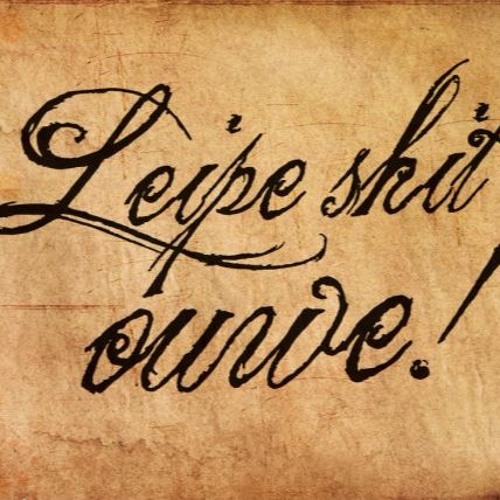 Leipe shit
ouwe!